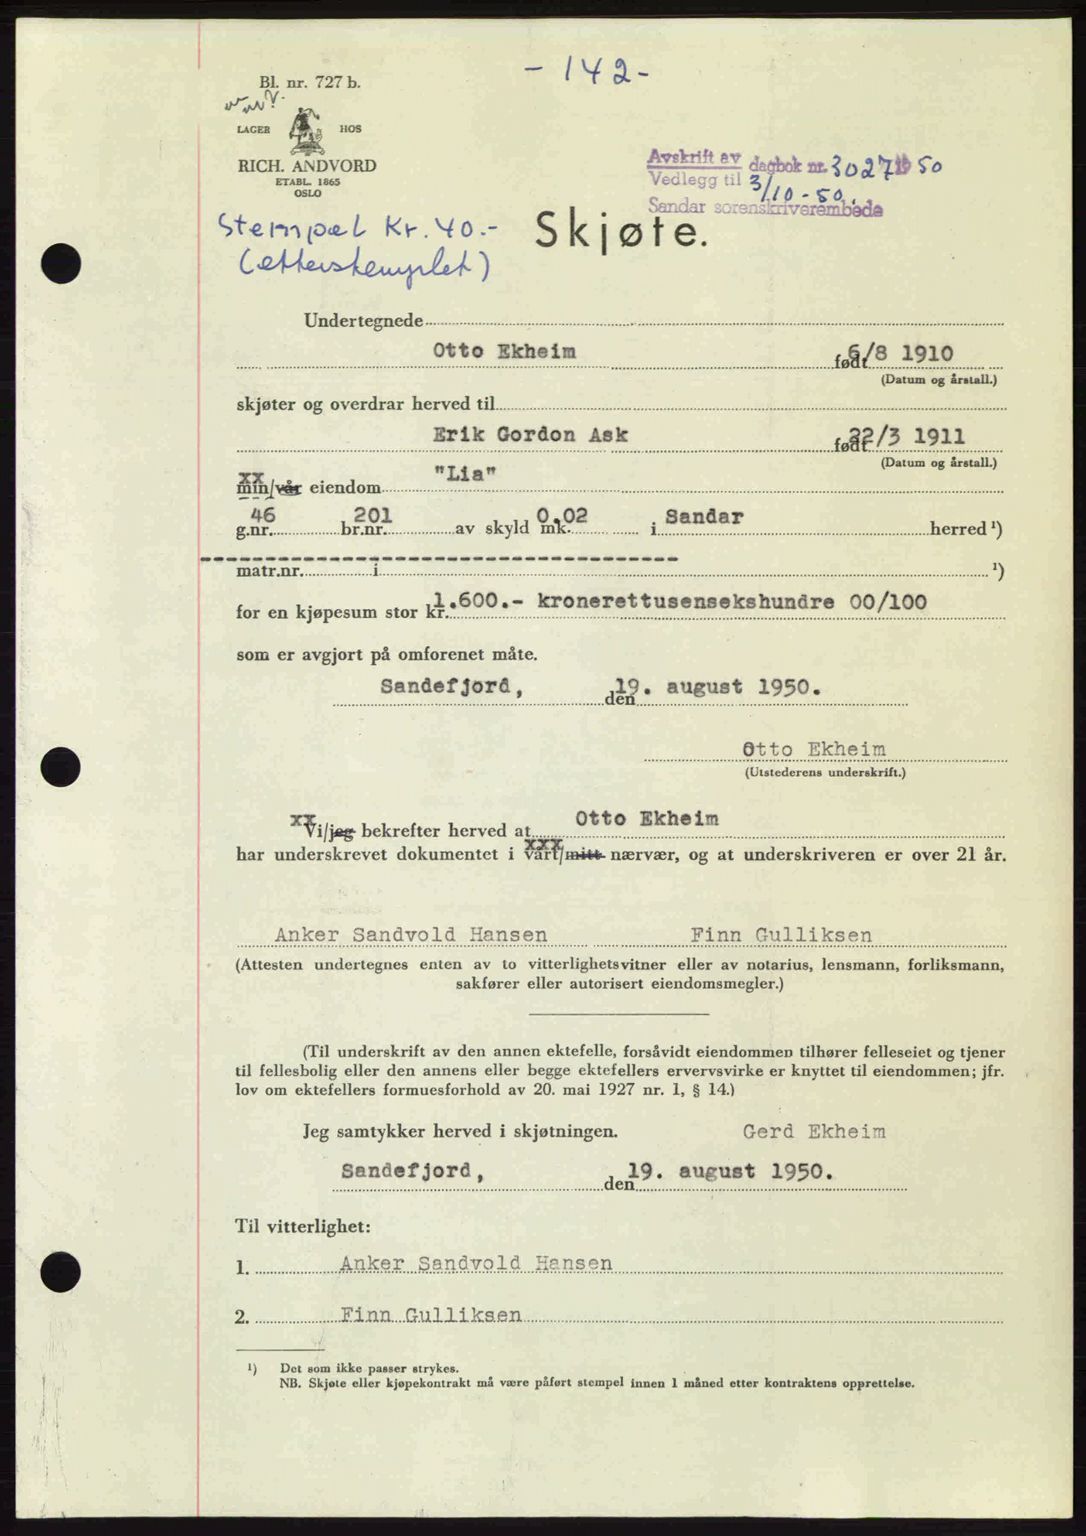 - 142 -
Bl. nr. 727 b.
LAGER HOS
RICH. ANDVORD
ETABL. 1865
OSLO
Avskrift av dagbok nr. 3027 1950
Vedlegg til 3/10-50.
Sandar sorenskriverembede
Stempel Kr. 40.-
(etterstemplet)
Skjøte.
Undertegnede
Otto Ekheim født 6/8 1910
(Datum og årstall.)
skjøter og overdrar herved til
Erik Gordon Ask født 22/3 1911
(Datum og årstall.)
xx "Lia"
min/vår eiendom
g.nr. 46 br.nr. 201 av skyld mk. 0,02 i Sandar herred ¹)
matr.nr. i ¹)
for en kjøpesum stor kr. 1.600.- kronerettusensekshundre 00/100
som er avgjort på omforenet måte.
Sandefjord, den 19. august 1950.
Otto Ekheim
(Utstederens underskrift.)
xx
Vi/jeg bekrefter herved at Otto Ekheim
xxx
har underskrevet dokumentet i vårt/mitt nærvær, og at underskriveren er over 21 år.
Anker Sandvold Hansen Finn Gulliksen
(Attesten undertegnes enten av to vitterlighetsvitner eller av notarius, lensmann, forliksmann,
sakfører eller autorisert eiendomsmegler.)
(Til underskrift av den annen ektefelle, forsåvidt eiendommen tilhører felleseiet og tjener
til fellesbolig eller den annens eller begge ektefellers ervervsvirke er knyttet til eiendommen; jfr.
lov om ektefellers formuesforhold av 20. mai 1927 nr. 1, § 14.)
Jeg samtykker herved i skjøtningen. Gerd Ekheim
Sandefjord, den 19. august 1950.
Til vitterlighet:
1. Anker Sandvold Hansen
2. Finn Gulliksen
¹) Det som ikke passer strykes.
NB. Skjøte eller kjøpekontrakt må være påført stempel innen 1 måned etter kontraktens opprettelse.